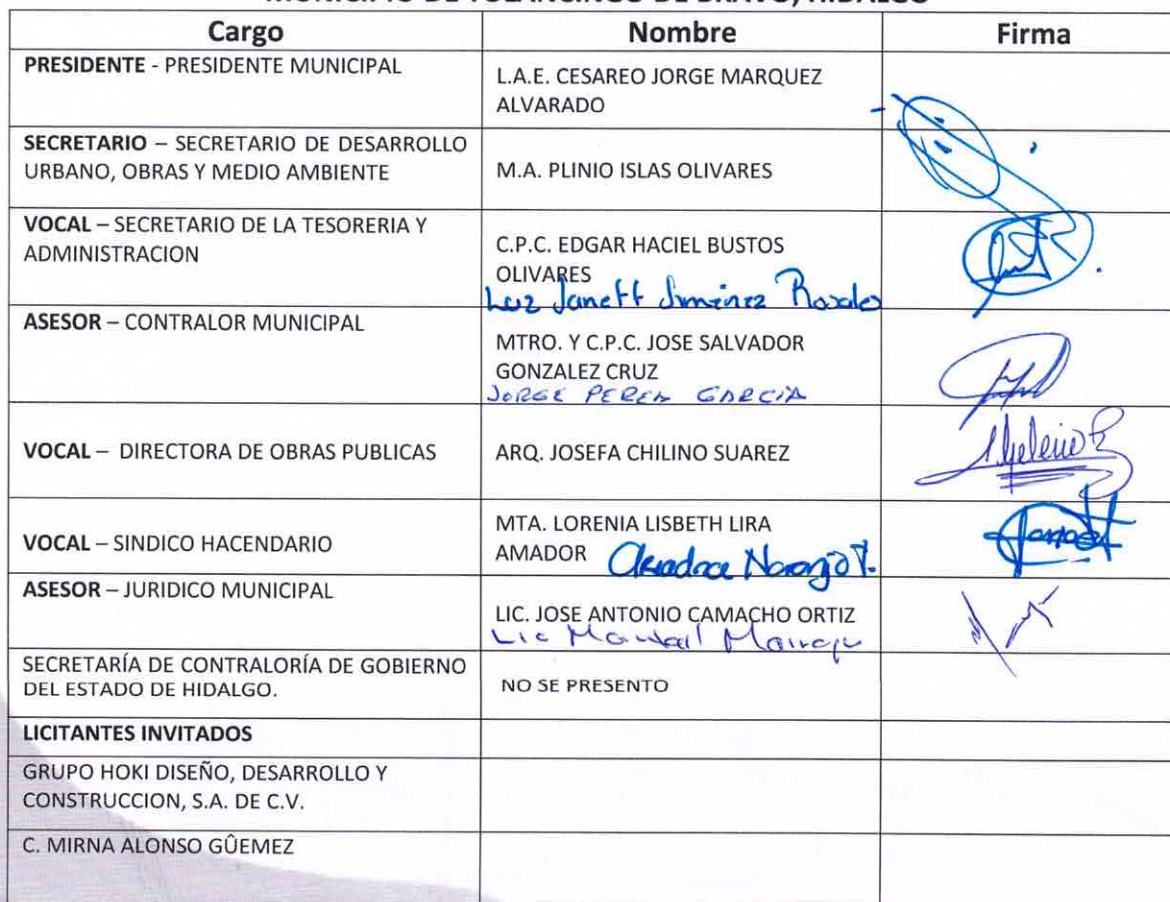 MUNICIPIO DE TULANCINGO DE BRAVO, HIDALGO
Cargo Nombre Firma
PRESIDENTE - PRESIDENTE MUNICIPAL
L.A.E. CESAREO JORGE MARQUEZ
ALVARADO
SECRETARIO – SECRETARIO DE DESARROLLO
URBANO, OBRAS Y MEDIO AMBIENTE
M.A. PLINIO ISLAS OLIVARES
VOCAL – SECRETARIO DE LA TESORERIA Y
ADMINISTRACION
C.P.C. EDGAR HACIEL BUSTOS
OLIVARES
Luz Janett Jiménez Rosales
ASESOR – CONTRALOR MUNICIPAL
MTRO. Y C.P.C. JOSE SALVADOR
GONZALEZ CRUZ
JORGE PEREZ GARCIA
VOCAL – DIRECTORA DE OBRAS PUBLICAS
ARQ. JOSEFA CHILINO SUAREZ
VOCAL – SINDICO HACENDARIO
MTA. LORENIA LISBETH LIRA
AMADOR
ASESOR – JURIDICO MUNICIPAL
LIC. JOSE ANTONIO CAMACHO ORTIZ
Lic
SECRETARÍA DE CONTRALORÍA DE GOBIERNO
DEL ESTADO DE HIDALGO.
NO SE PRESENTO
LICITANTES INVITADOS
GRUPO HOKI DISEÑO, DESARROLLO Y
CONSTRUCCION, S.A. DE C.V.
C. MIRNA ALONSO GÛEMEZ